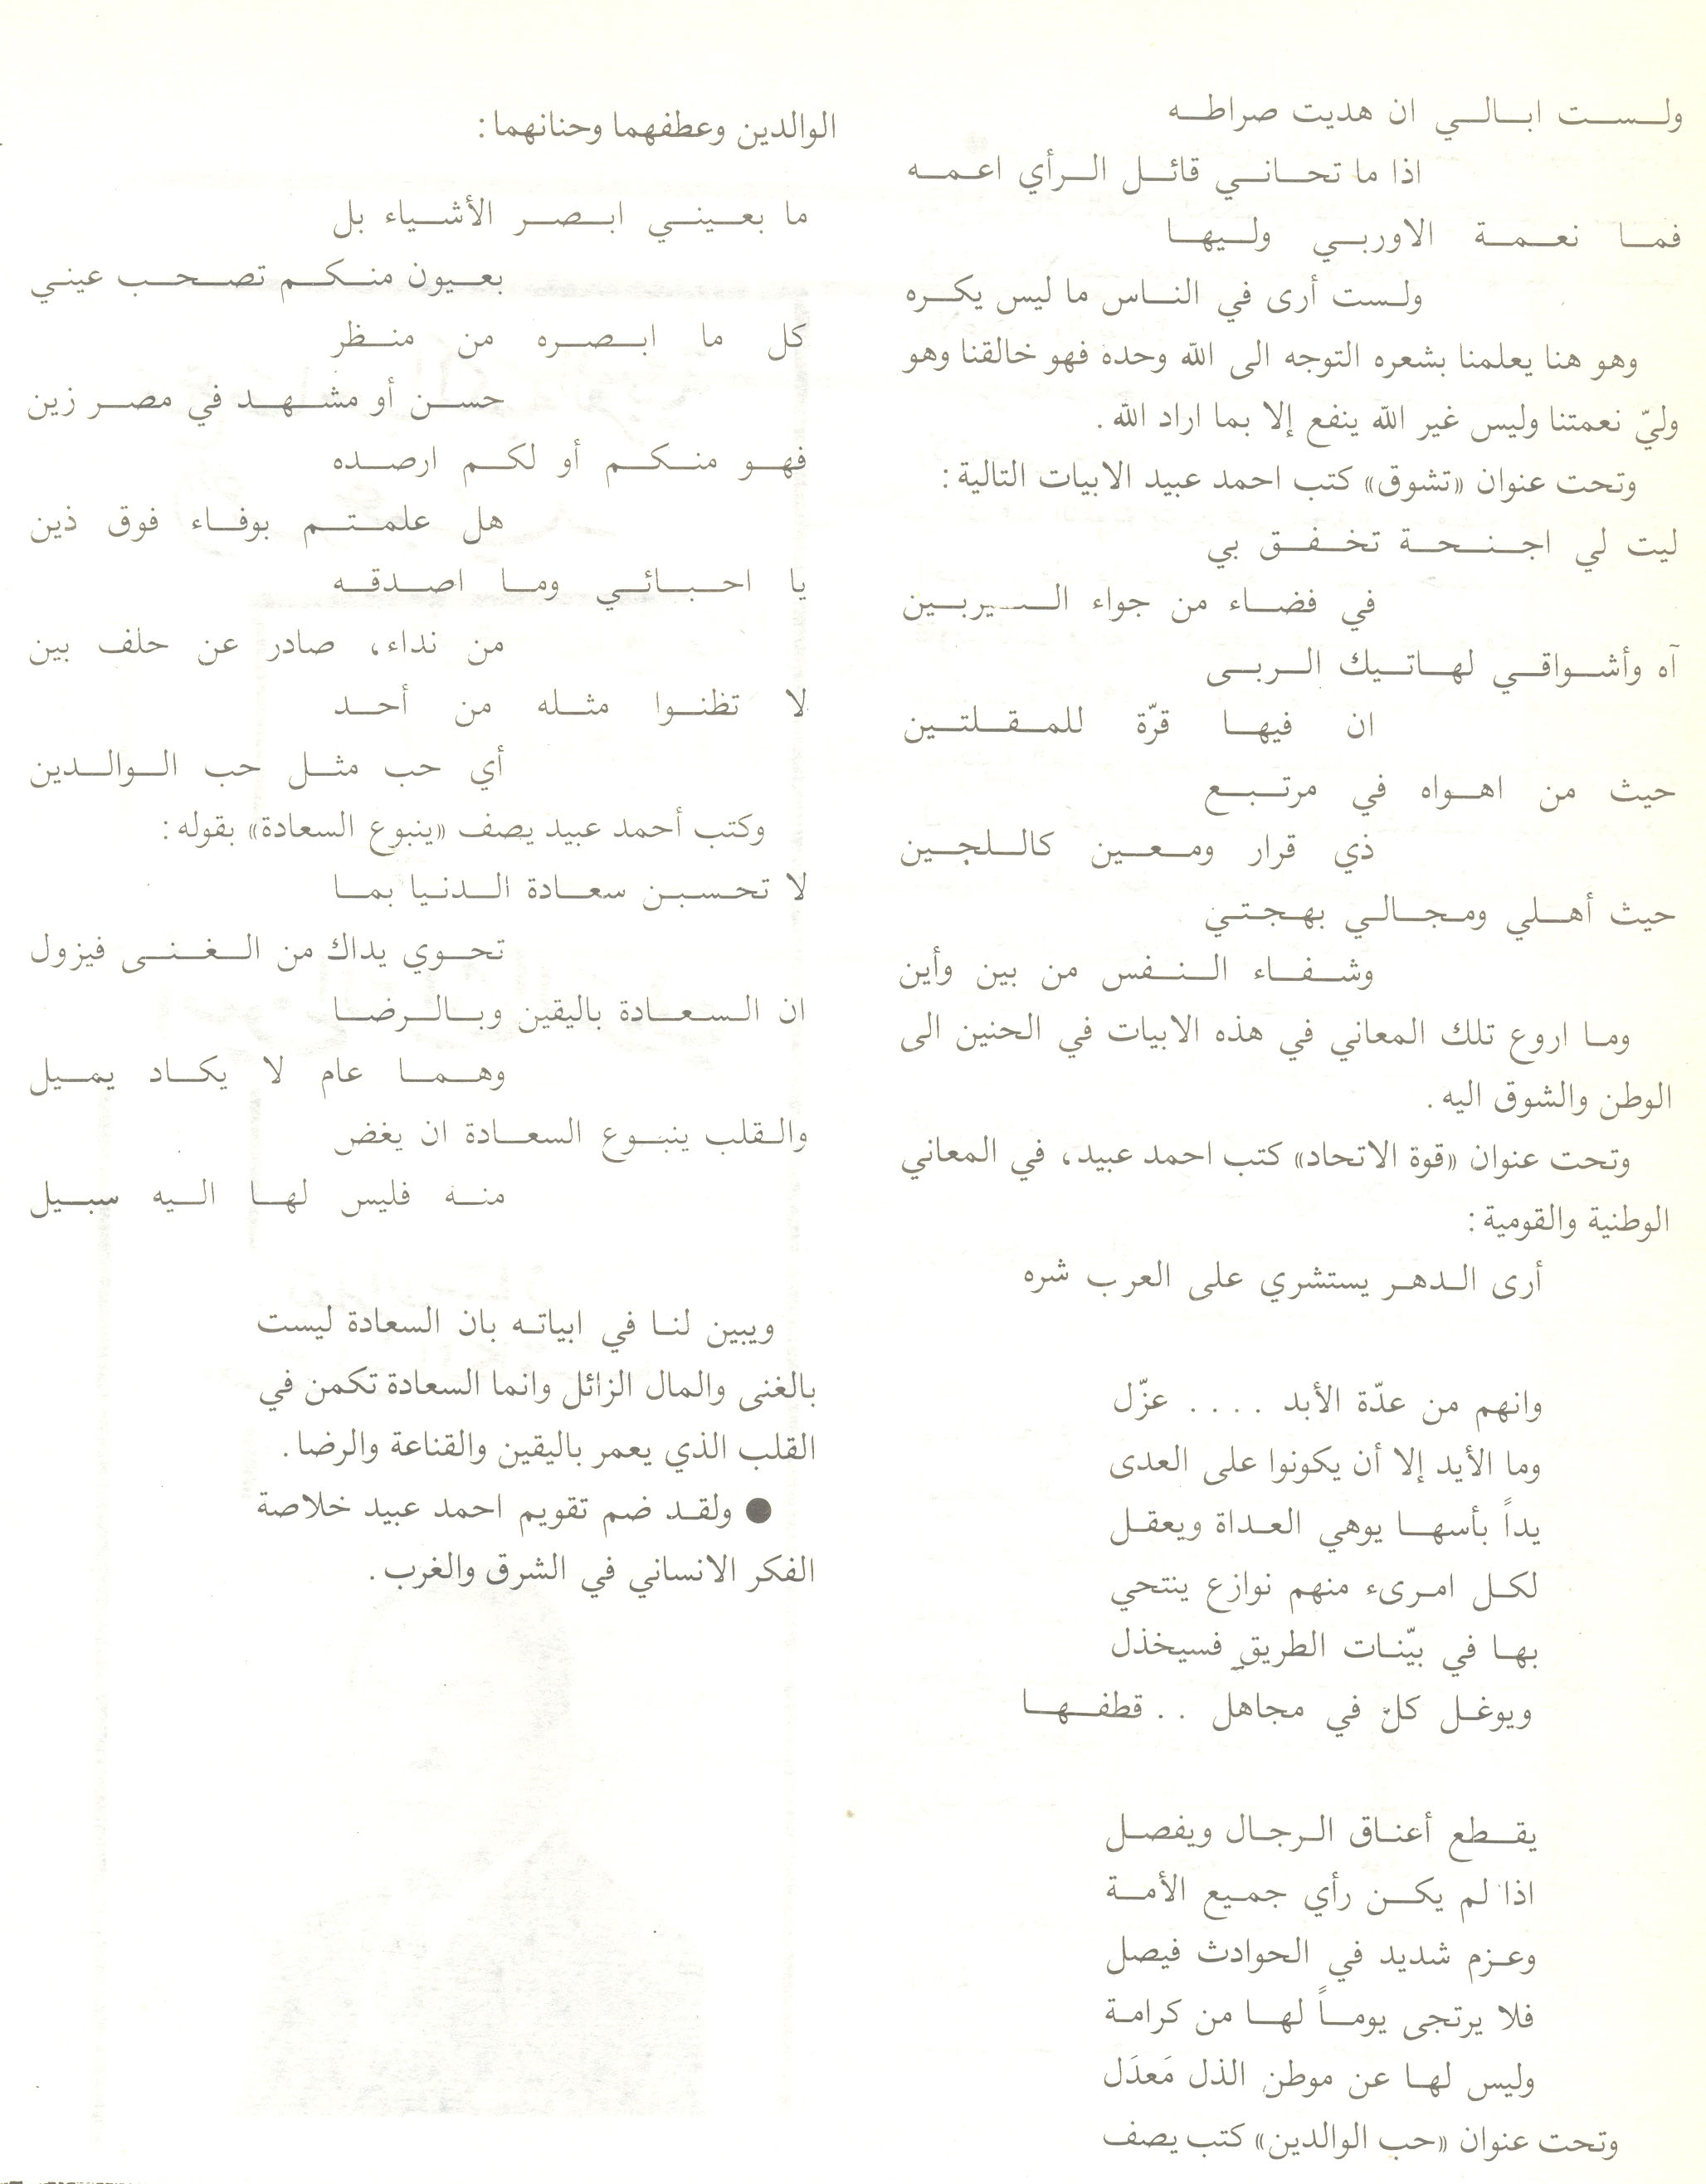 ولست ابالي ان هديت صراطه
اذا ما تحاني قائل الرأي اعمه
فما نعمة الاوربي وليها
ولست أرى في الناس ما ليس يكره
وهو هنا يعلمنا بشعره التوجه الى الله وحده فهو خالقنا وهو
وليّ نعمتنا وليس غير الله ينفع إلا بما اراد الله.
وتحت عنوان «تشوق» كتب احمد عبيد الابيات التالية:
ليت لي اجنحة تخفق بي
في فضاء من جواء النيربين
آه وأشواقي لهاتيك الربى
ان فيها قرّة للمقلتين
حيث من اهواه في مرتبع
ذي قرار ومعين كاللجين
حيث أهلي ومجالي بهجتي
وشفاء النفس من بين وأين
وما اروع تلك المعاني في هذه الابيات في الحنين الى
الوطن والشوق اليه.
وتحت عنوان «قوة الاتحاد» كتب احمد عبيد، في المعاني
الوطنية والقومية:
أرى الدهر يستشري على العرب شره
وانهم من عدّة الأبد .... عزّل
وما الأيد إلا أن يكونوا على العدى
يداً بأسها يوهي العداة ويعقل
لكل امرىء منهم نوازع ينتحي
بها في بيّنات الطريق فسيخذل
ويوغل كلّ في مجاهل .. قطفها
يقطع أعناق الرجال ويفصل
اذا لم يكن رأي جميع الأمة
وعزم شديد في الحوادث فيصل
فلا يرتجى يوماً لها من كرامة
وليس لها عن موطن الذل مَعدَل
وتحت عنوان «حب الوالدين» كتب يصف
الوالدين وعطفهما وحنانهما:
ما بعيني ابصر الأشياء بل
بعيون منكم تصحب عيني
كل ما ابصره من منظر
حسن أو مشهد في مصر زين
فهو منكم أو لكم ارصده
هل علمتم بوفاء فوق ذين
يا احبائي وما اصدقه
من نداء، صادر عن حلف بين
لا تظنوا مثله من أحد
أي حب مثل حب الوالدين
وكتب أحمد عبيد يصف «ينبوع السعادة» بقوله:
لا تحسبن سعادة الدنيا بما
تحوي يداك من الغنى فيزول
ان السعادة باليقين وبالرضا
وهما عام لا يكاد يميل
والقلب ينبوع السعادة ان يغض
منه فليس لها اليه سبيل
ويبين لنا في ابياته بان السعادة ليست
بالغنى والمال الزائل وانما السعادة تكمن في
القلب الذي يعمر باليقين والقناعة والرضا.
● ولقد ضم تقويم احمد عبيد خلاصة
الفكر الانساني في الشرق والغرب.